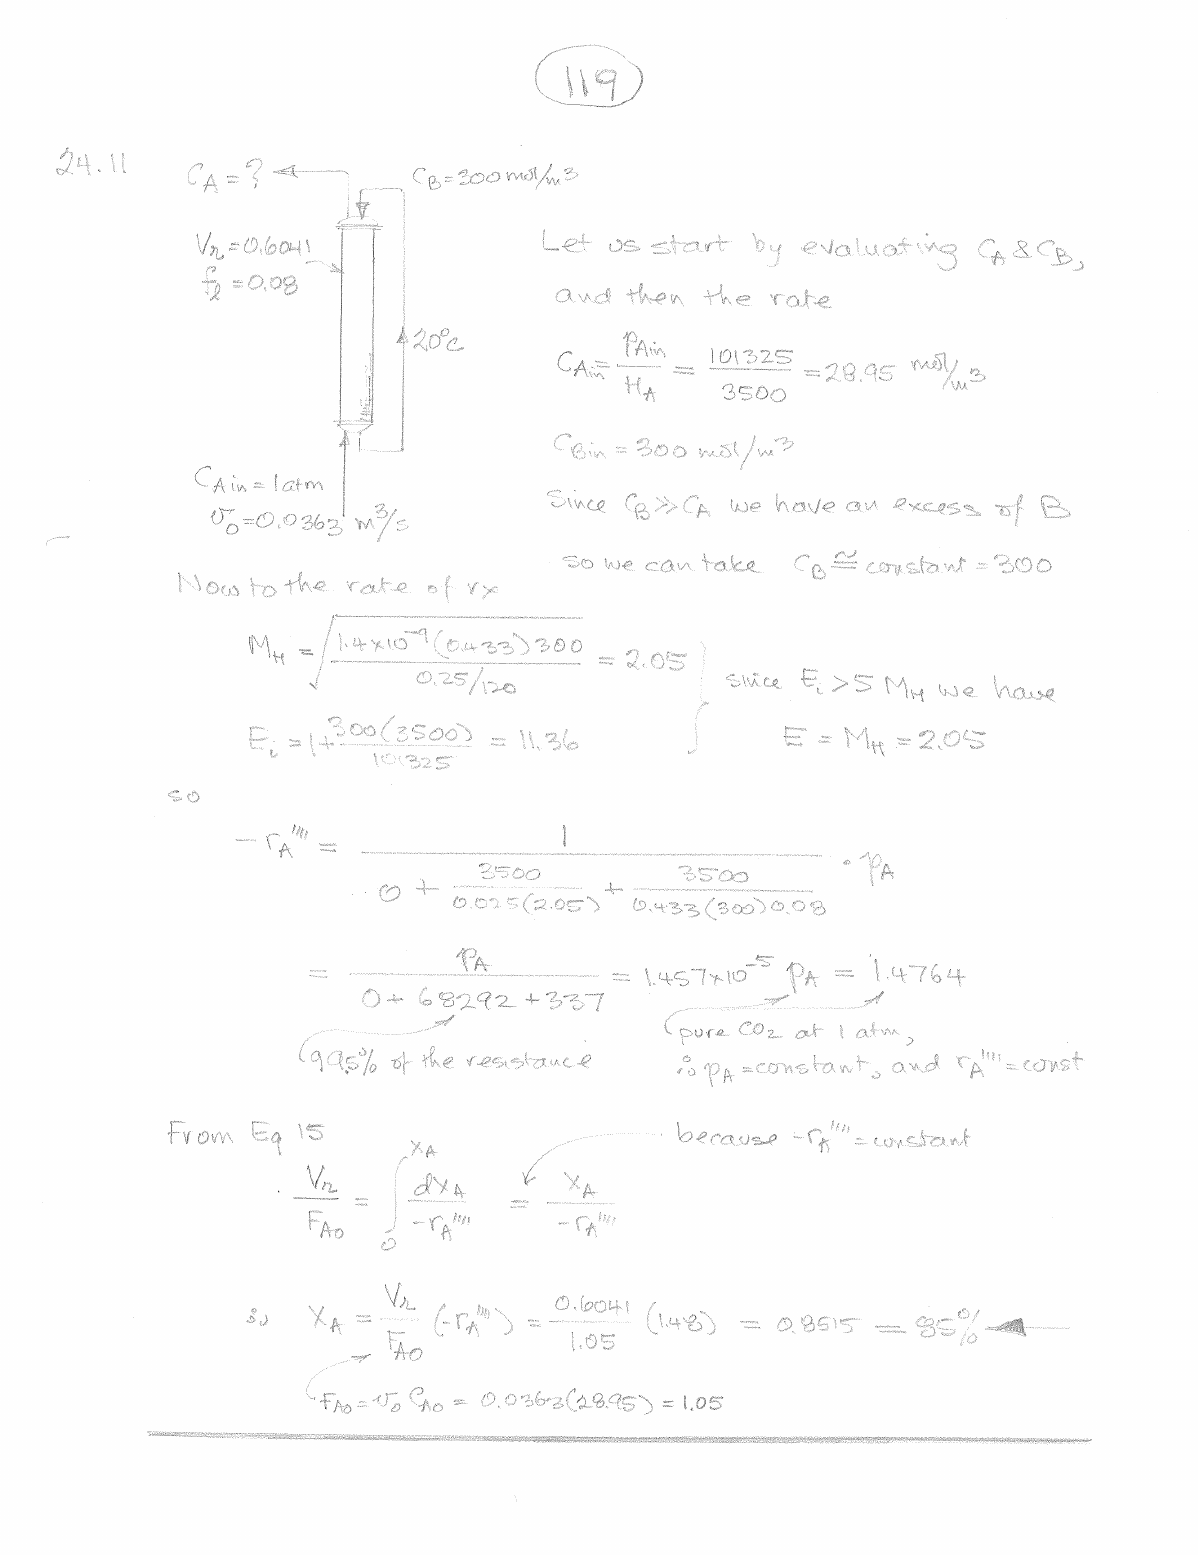 119
24.11
C_A = ?
C_B = 300 mol/m3
V_r = 0.6041
f_l = 0.08
20°C
C_A in = 1 atm
v_0 = 0.0363 m3/s
Let us start by evaluating C_A & C_B,
and then the rate
C_Ain = p_Ain / H_A = 101325 / 3500 = 28.95 mol/m3
C_Bin = 300 mol/m3
Since C_B >> C_A we have an excess of B
so we can take C_B ≅ constant = 300
Now to the rate of rx
M_H = √(1.4×10^-9 (0.433) 300 / 0.25/120) = 2.05
E_i = 1 + 300(3500) / 101325 = 11.36
since E_i > 5 M_H we have
E = M_H = 2.05
so
-r_A'''' = 1 / (0 + 3500 / 0.025(2.05) + 3500 / 0.433(300)0.08) · p_A
= p_A / (0 + 68292 + 337) = 1.457×10^-5 p_A = 1.4764
99.5% of the resistance
pure CO2 at 1 atm,
∴ p_A = constant, and r_A'''' = const
From Eq 15
because -r_A'''' = constant
V_r / F_A0 = ∫_0^X_A dX_A / -r_A'''' = X_A / -r_A''''
∴ X_A = V_r / F_A0 (-r_A'''') = 0.6041 / 1.05 (1.48) = 0.8515 = 85%
F_A0 = v_0 C_A0 = 0.0363(28.95) = 1.05